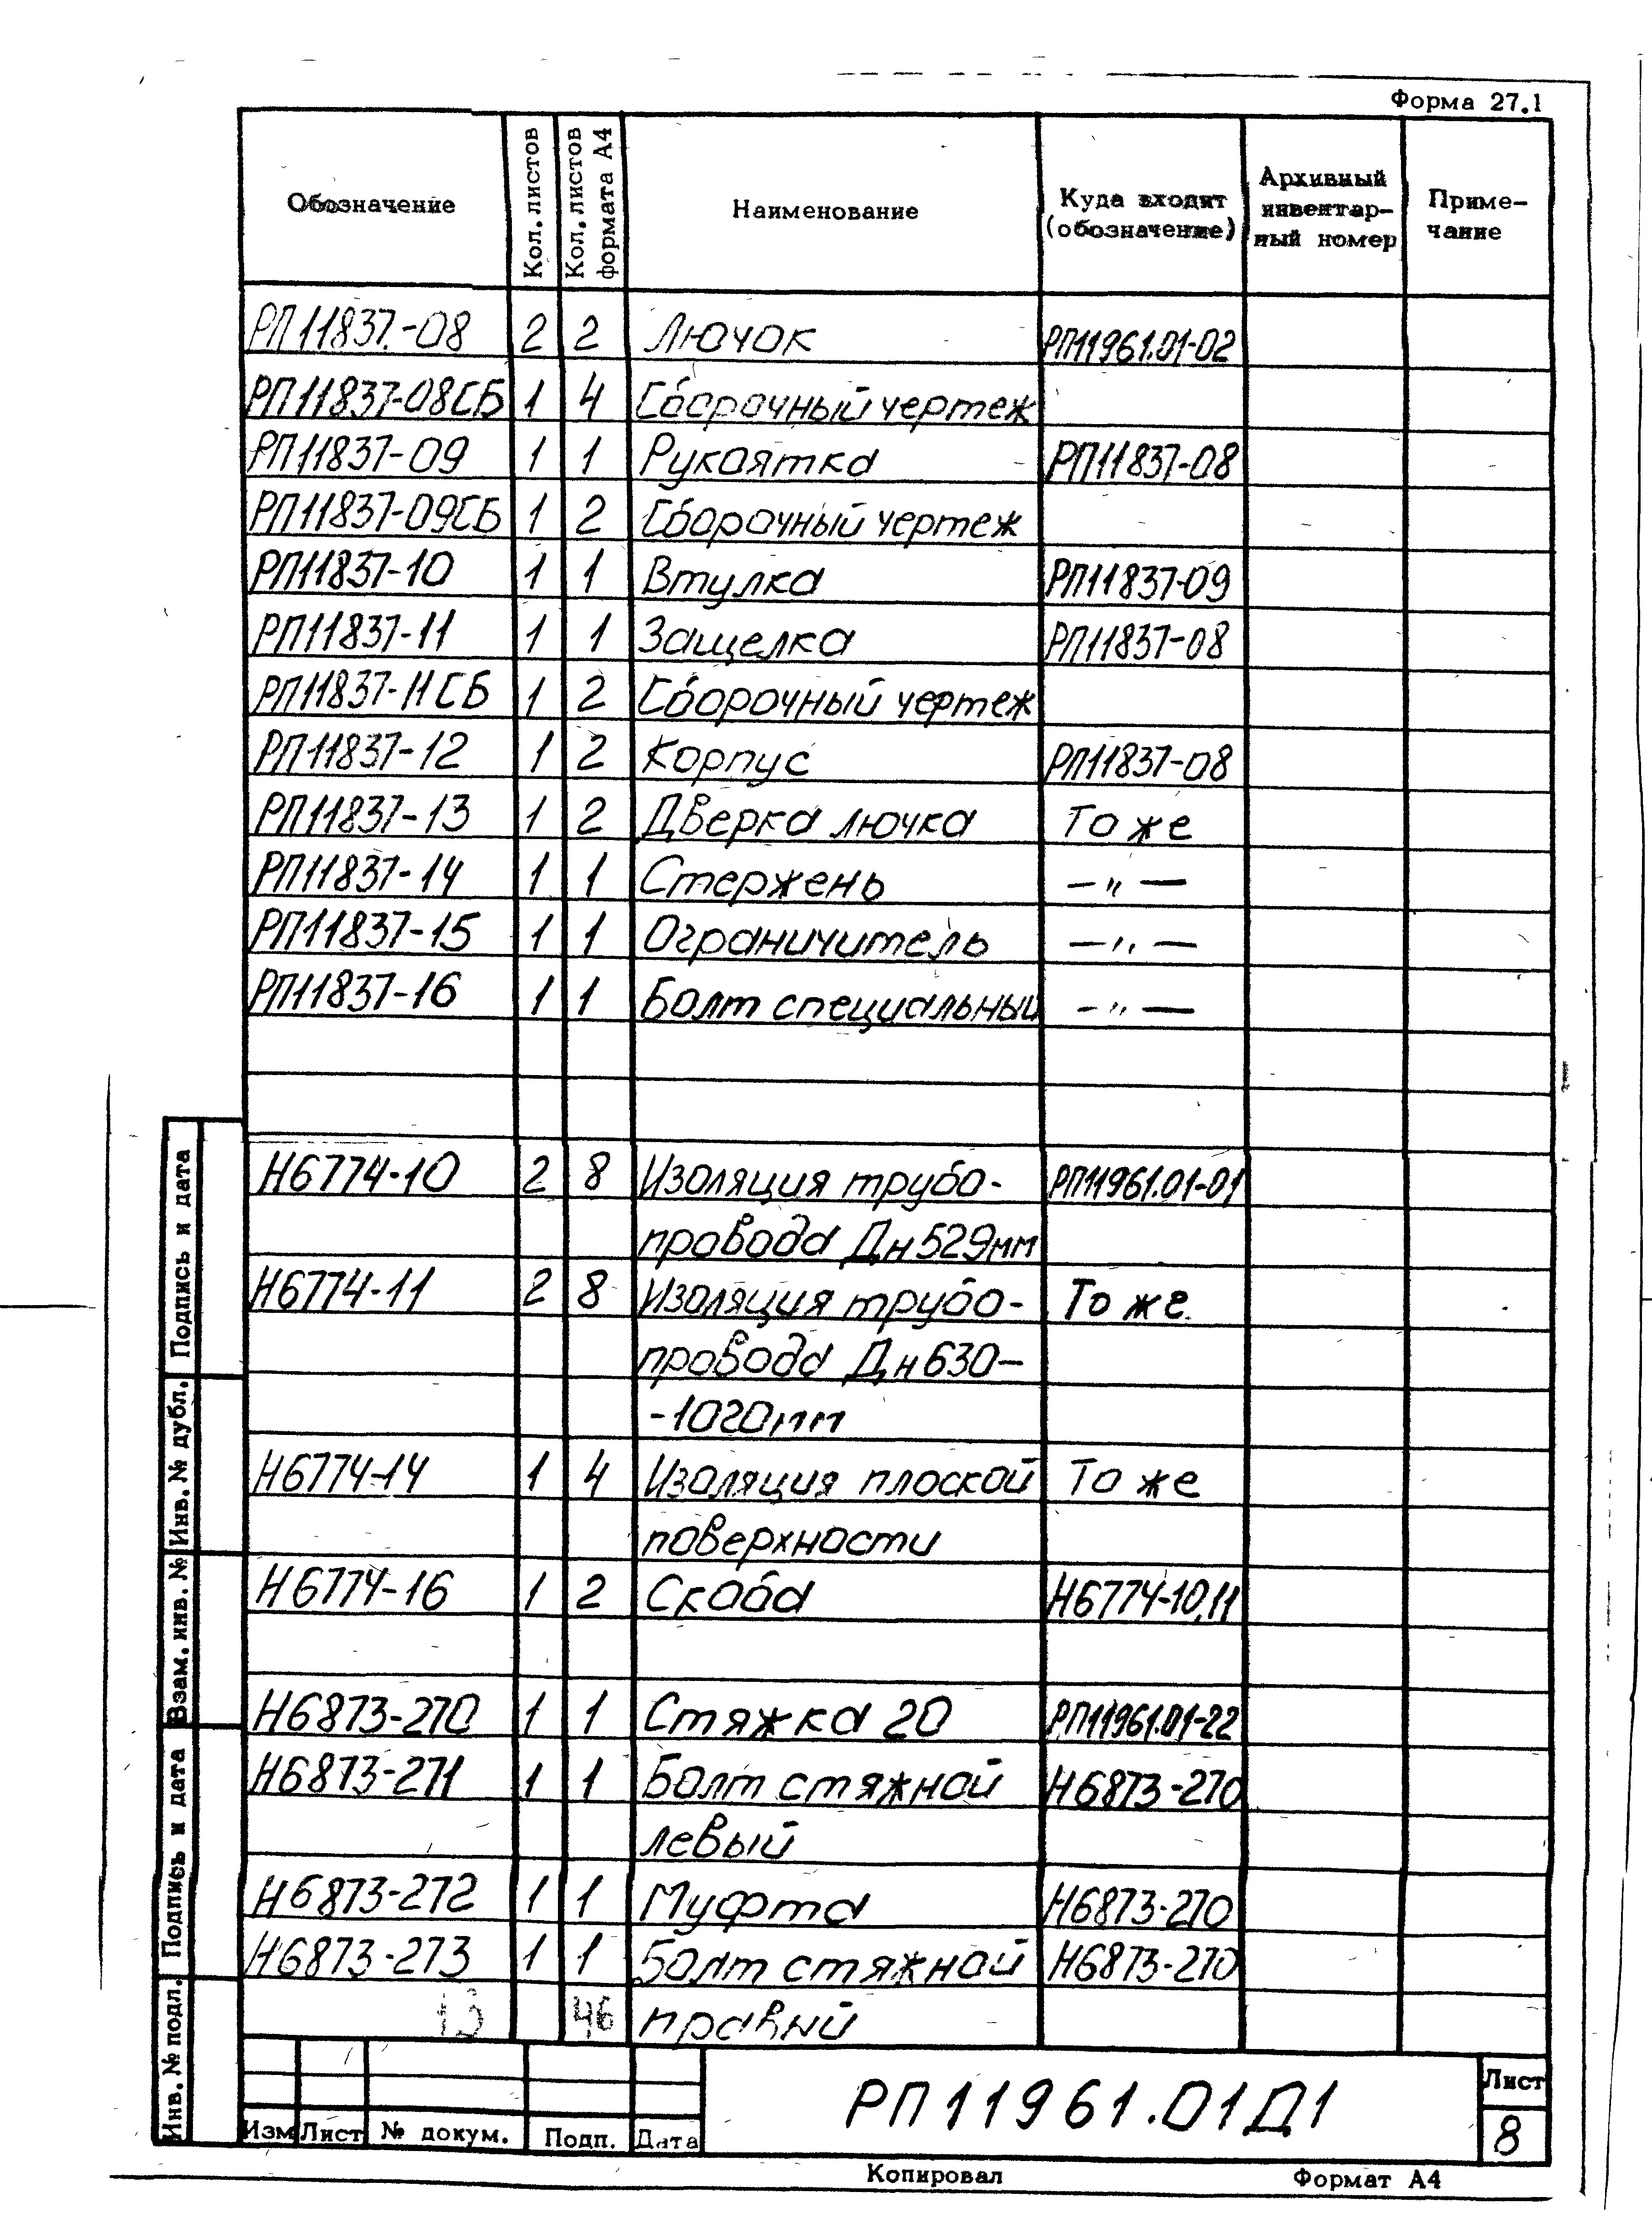 Форма 27.1
Обозначение Кол. листов Кол. листов формата А4 Наименование Куда входит (обозначение) Архивный инвентар-ный номер Приме-чание
РП11837-08 2 2 Лючок РП11961.01-02
РП11837-08СБ 1 4 Сборочный чертеж
РП11837-09 1 1 Рукоятка РП11837-08
РП11837-09СБ 1 2 Сборочный чертеж
РП11837-10 1 1 Втулка РП11837-09
РП11837-11 1 1 Защелка РП11837-08
РП11837-11СБ 1 2 Сборочный чертеж
РП11837-12 1 2 Корпус РП11837-08
РП11837-13 1 2 Дверка лючка То же
РП11837-14 1 1 Стержень —"—
РП11837-15 1 1 Ограничитель —"—
РП11837-16 1 1 Болт специальный —"—
Н6774-10 2 8 Изоляция трубо- РП11961.01-01
провода Дн529мм
Н6774-11 2 8 Изоляция трубо- То же
провода Дн630-
-1020мм
Н6774-14 1 4 Изоляция плоской То же
поверхности
Н6774-16 1 2 Скоба Н6774-10,11
Н6873-270 1 1 Стяжка 20 РП11961.01-22
Н6873-271 1 1 Болт стяжной Н6873-270
левый
Н6873-272 1 1 Муфта Н6873-270
Н6873-273 1 1 Болт стяжной Н6873-270
13 46 правый
Инв. № подл. Подпись и дата Взам. инв. № Инв. № дубл. Подпись и дата
Изм Лист № докум. Подп. Дата
РП11961.01Д1
Лист
8
Копировал Формат А4